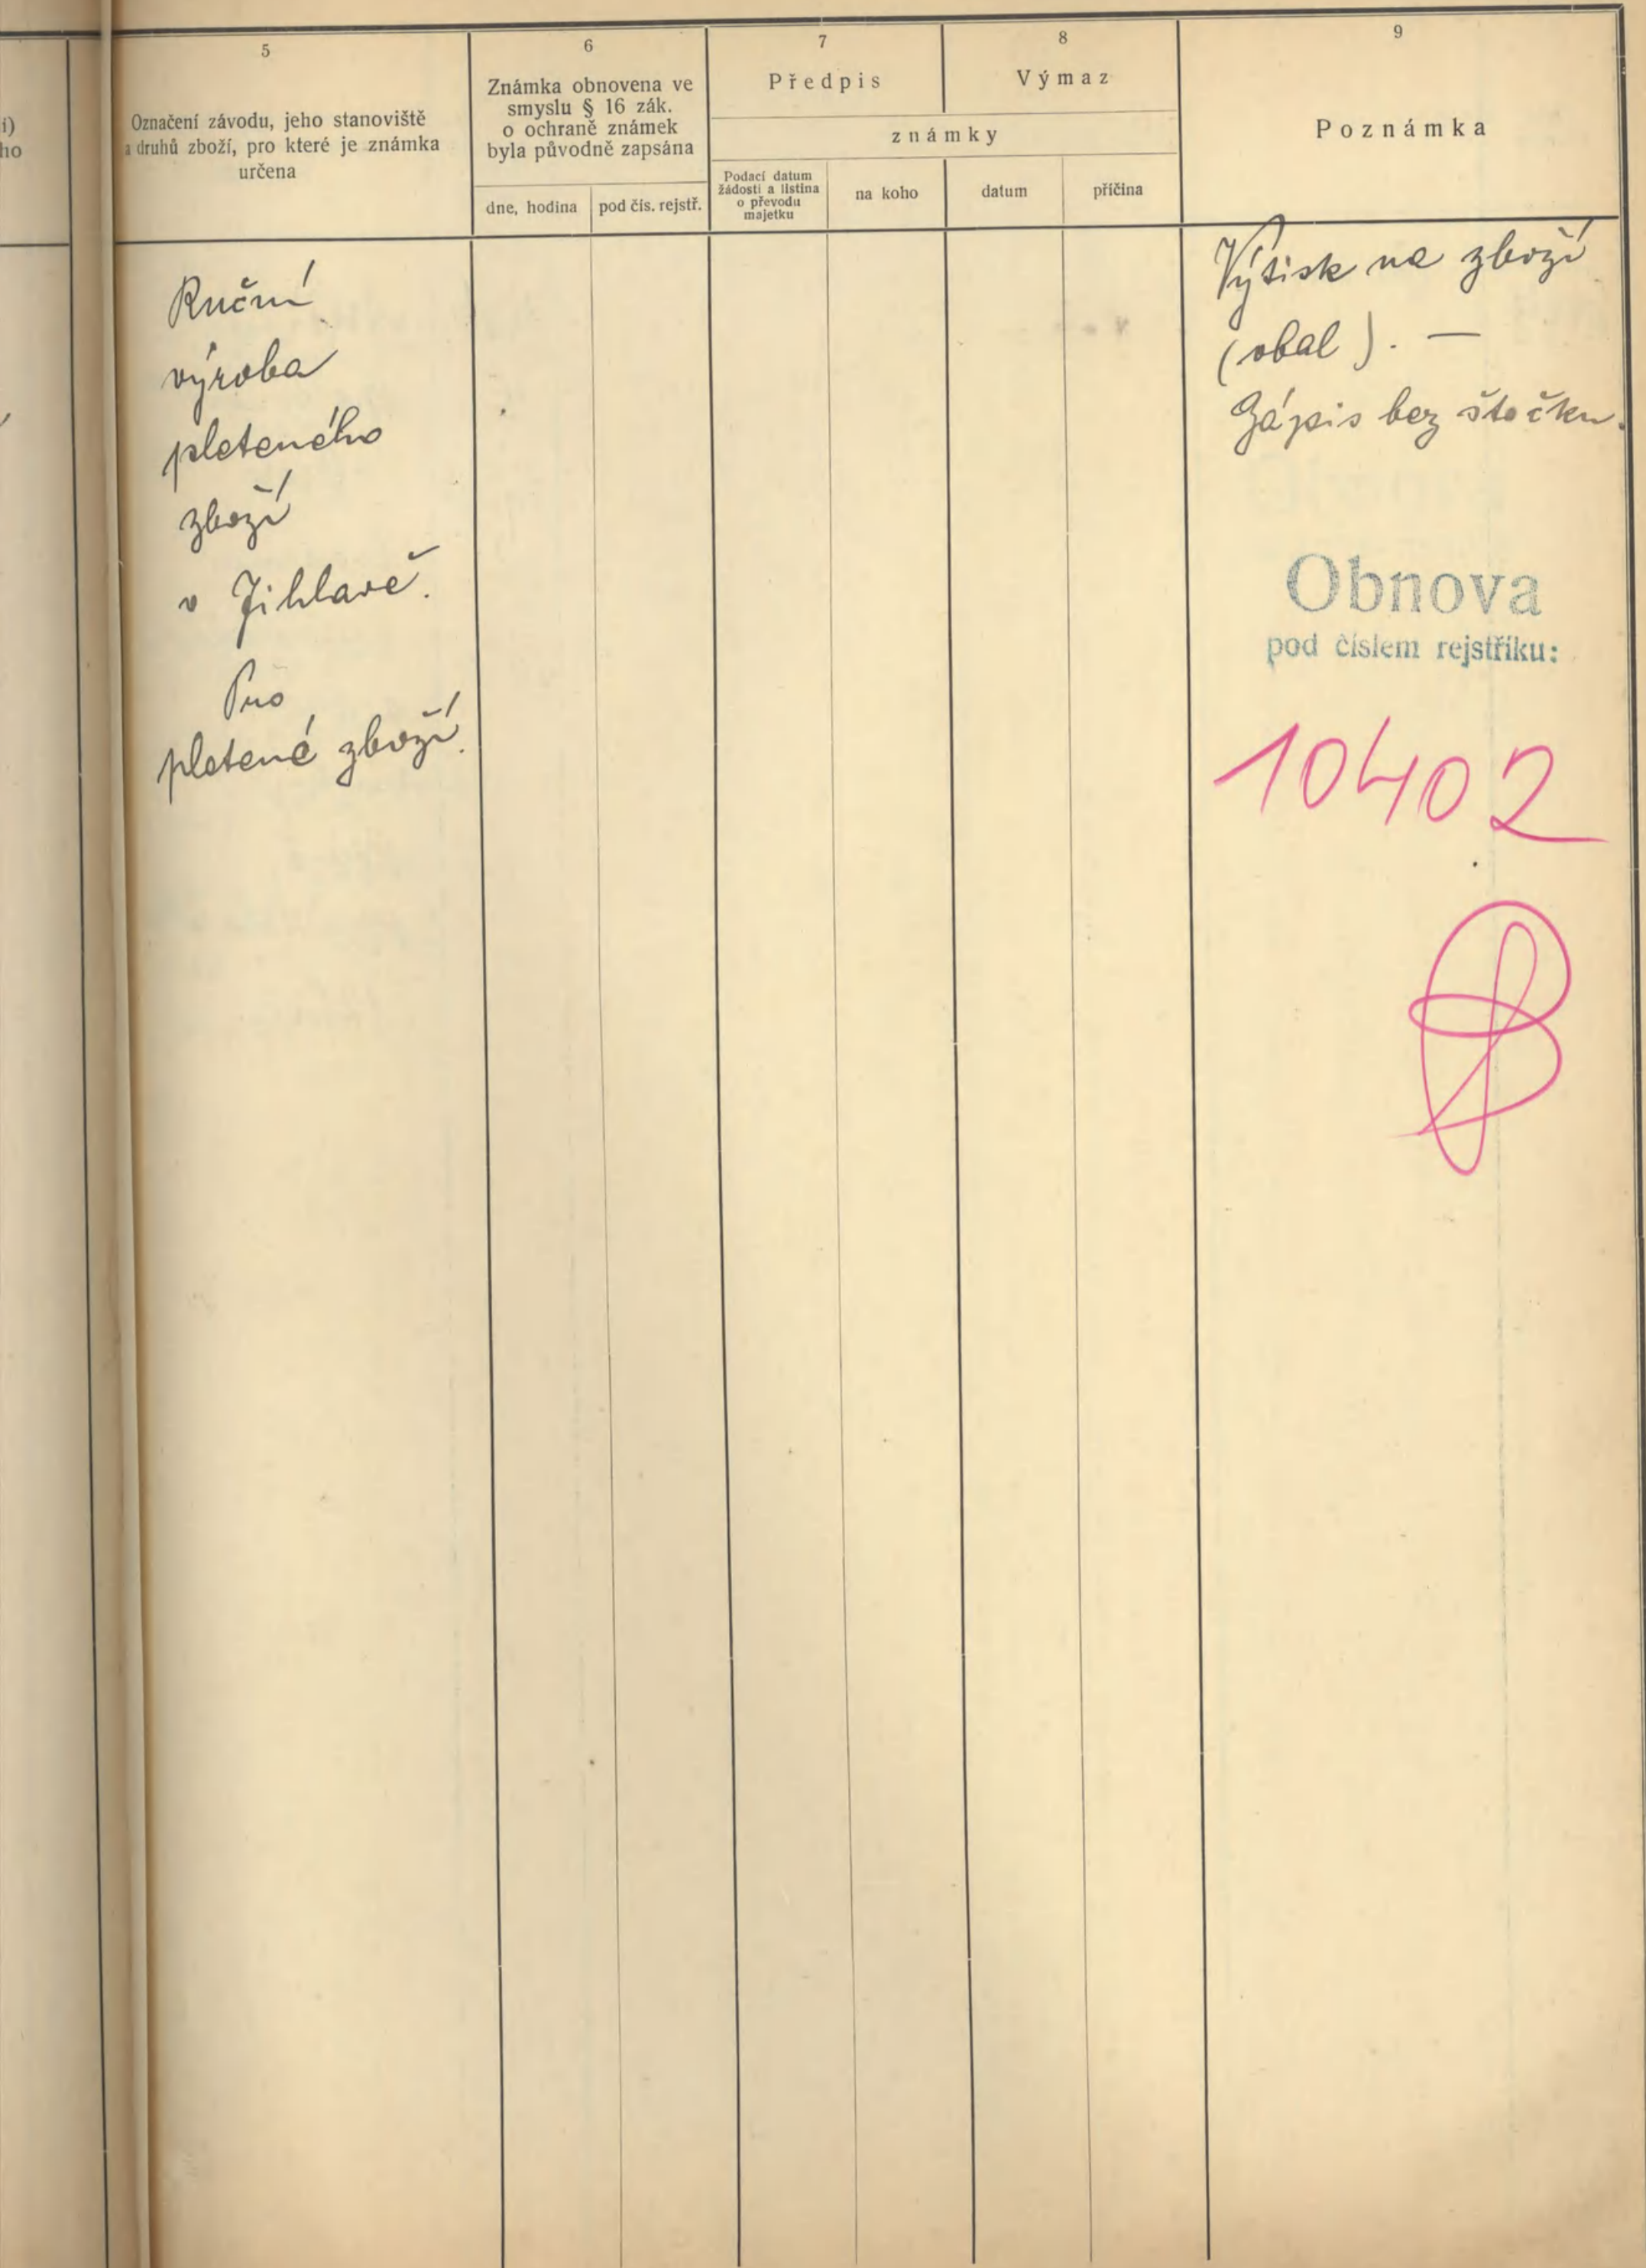 i)
ho
5
Označení závodu, jeho stanoviště
a druhů zboží, pro které je známka
určena
6
Známka obnovena ve
smyslu § 16 zák.
o ochraně známek
byla původně zapsána
dne, hodina
pod čís. rejstř.
7
Předpis
8
Výmaz
známky
Podací datum
žádosti a listina
o převodu
majetku
na koho
datum
příčina
9
Poznámka
Ruční
výroba
pleteného
zboží
v Jihlavě.
Pro
pletené zboží.
Výtisk na zboží
(obal). —
Zápis bez štočku.
Obnova
pod číslem rejstříku:
10402